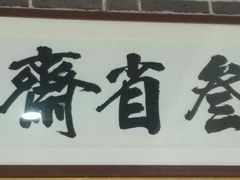 齋省叁